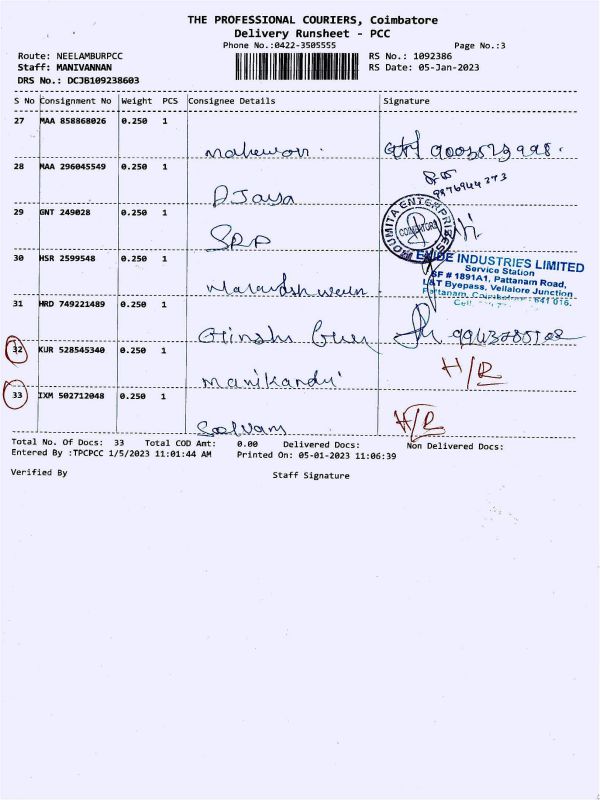 THE PROFESSIONAL COURIERS, Coimbatore
Delivery Runsheet - PCC
Phone No.:0422-3505555 Page No.:3
Route: NEELAMBURPCC RS No.: 1092386
Staff: MANIVANNAN RS Date: 05-Jan-2023
DRS No.: DCJB109238603
S No Consignment No Weight PCS Consignee Details Signature
27 MAA 858868026 0.250 1
28 MAA 296045549 0.250 1
D Jaya
29 GNT 249028 0.250 1
MOUMITA ENTERPRISES
COIMBATORE
SRP
30 HSR 2599548 0.250 1
EXIDE INDUSTRIES LIMITED
Service Station
SF # 1891A1, Pattanam Road,
L&T Byepass, Vellalore Junction
Pattanam, Coimbatore - 641 016.
Cell
31 HRD 749221489 0.250 1
32 KUR 528545340 0.250 1
H/R
33 IXM 502712048 0.250 1
Selvam H/R
Total No. Of Docs: 33 Total COD Amt: 0.00 Delivered Docs: Non Delivered Docs:
Entered By :TPCPCC 1/5/2023 11:01:44 AM Printed On: 05-01-2023 11:06:39
Verified By Staff Signature